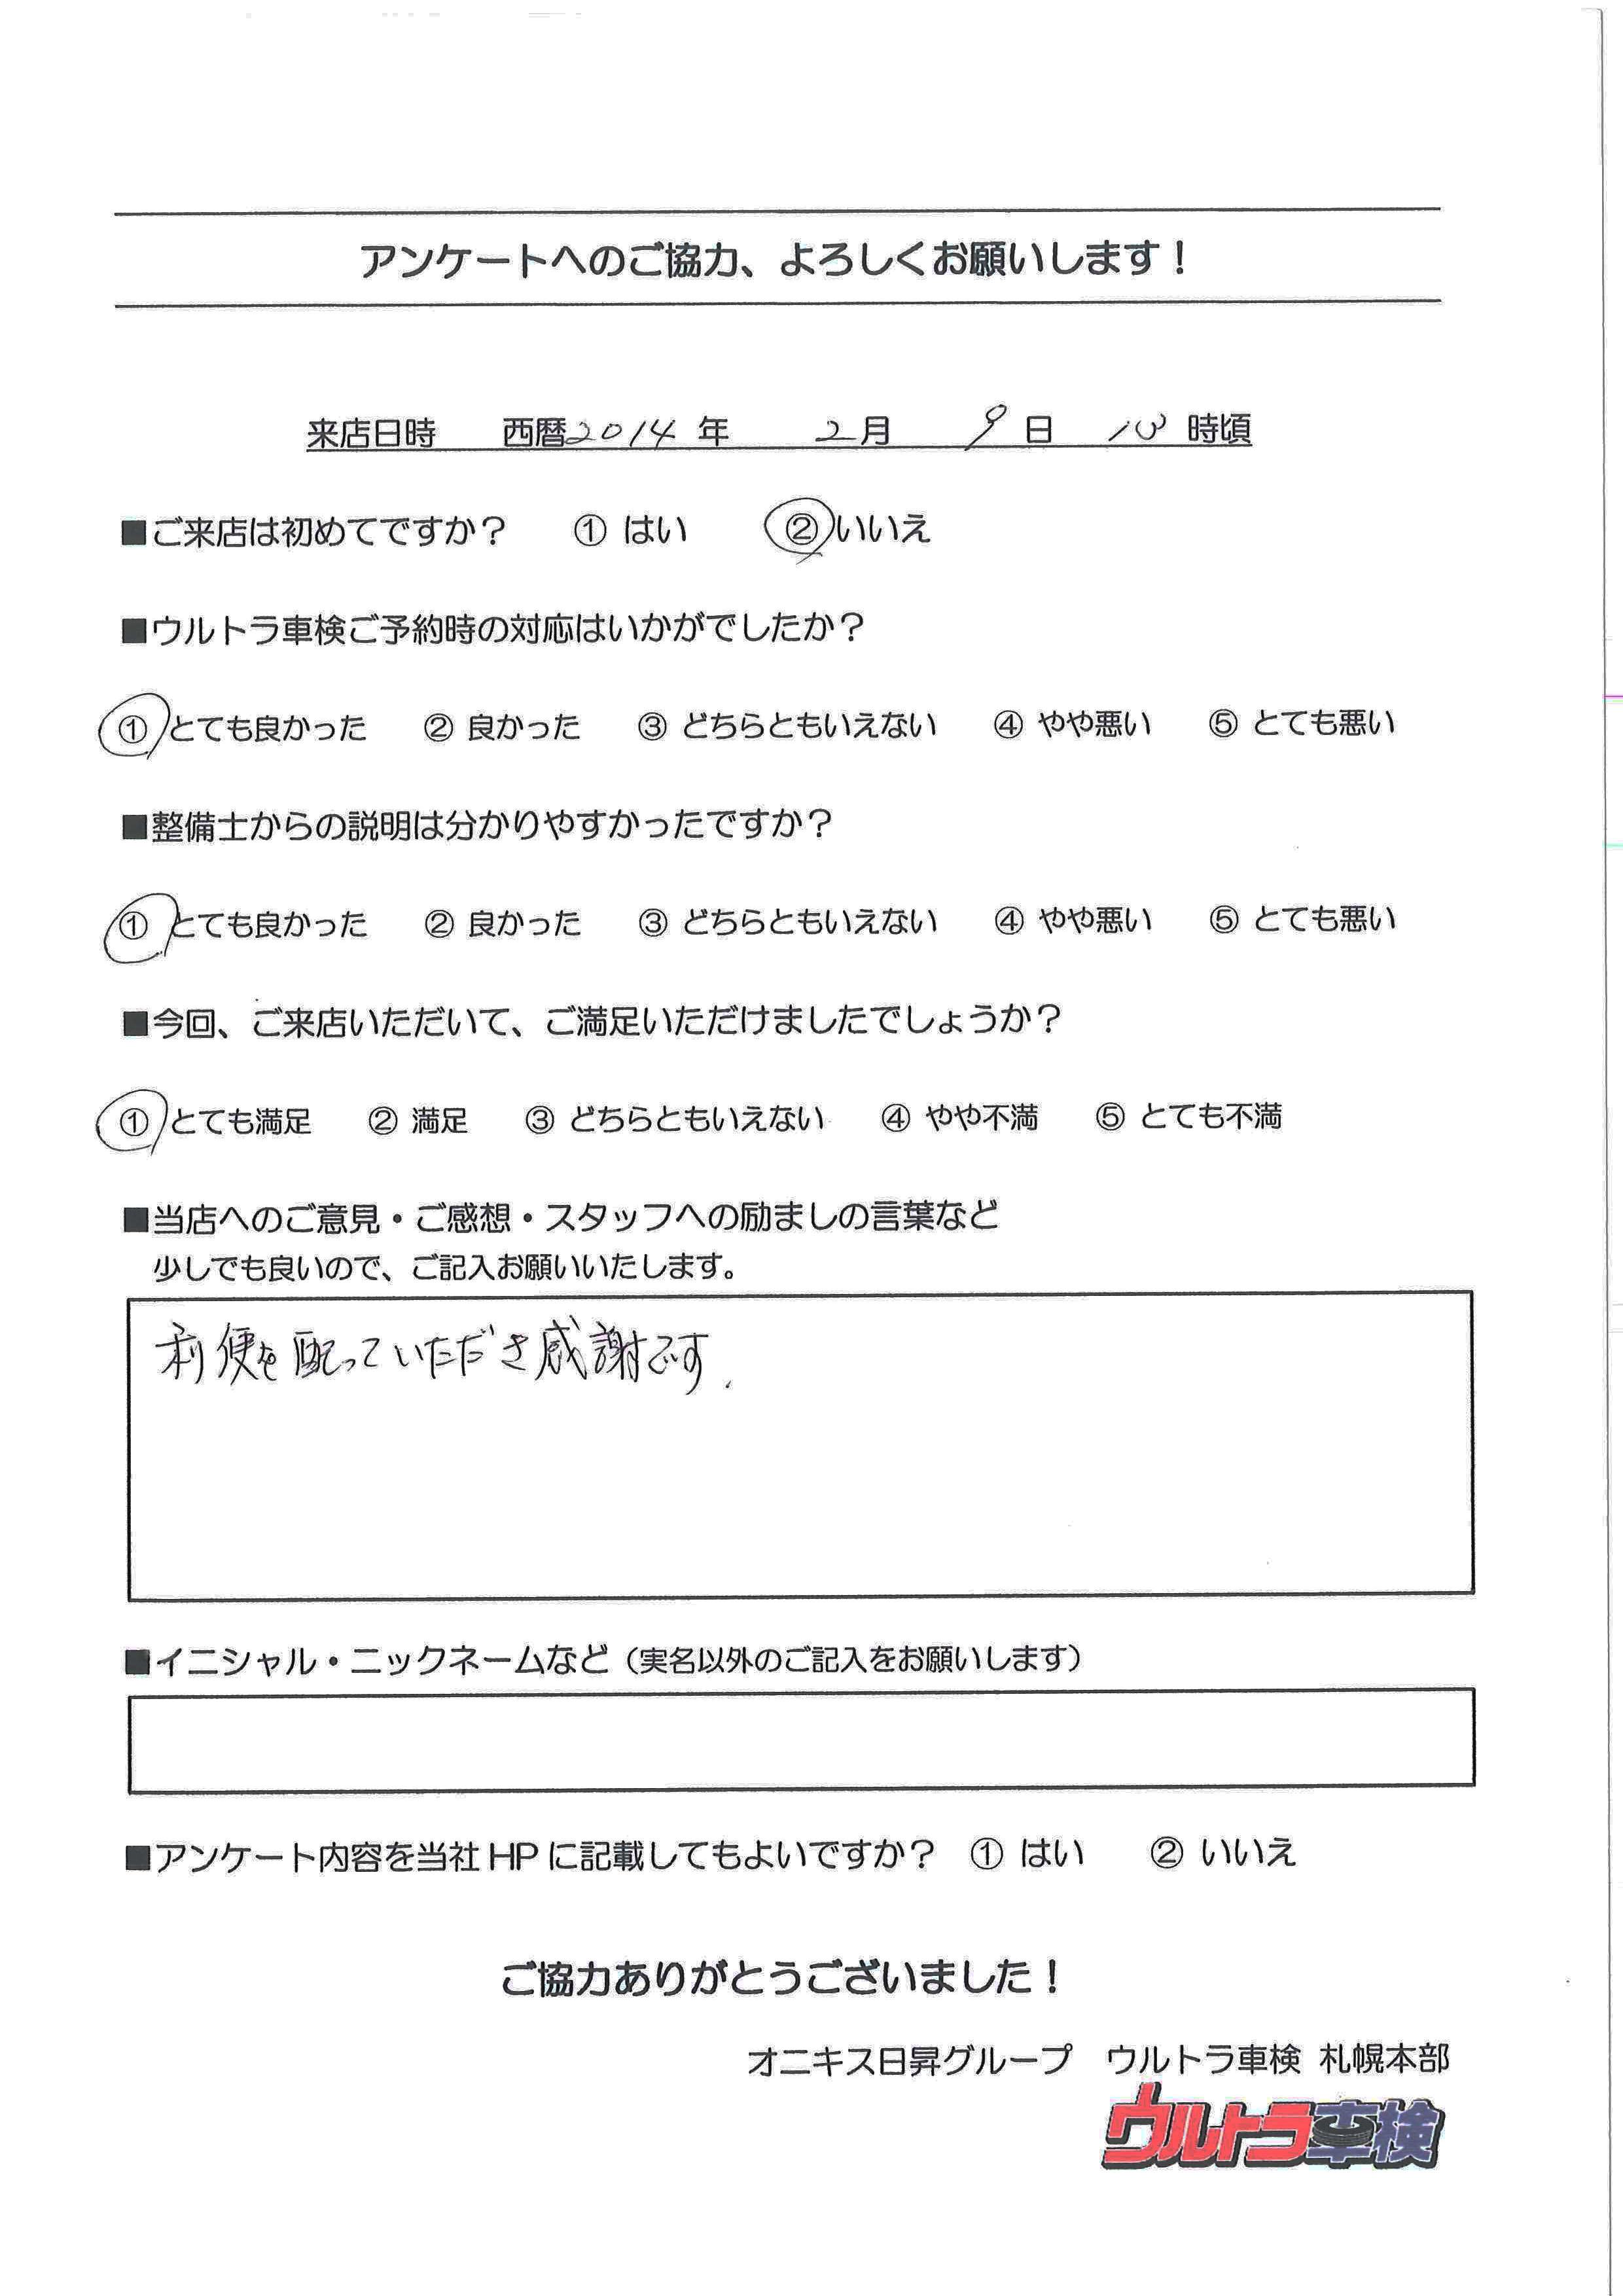 アンケートへのご協力、よろしくお願いします！
来店日時 西暦2014年 2月 9日 10時頃
■ご来店は初めてですか？ ① はい ② いいえ
■ウルトラ車検ご予約時の対応はいかがでしたか？
① とても良かった ② 良かった ③ どちらともいえない ④ やや悪い ⑤ とても悪い
■整備士からの説明は分かりやすかったですか？
① とても良かった ② 良かった ③ どちらともいえない ④ やや悪い ⑤ とても悪い
■今回、ご来店いただいて、ご満足いただけましたでしょうか？
① とても満足 ② 満足 ③ どちらともいえない ④ やや不満 ⑤ とても不満
■当店へのご意見・ご感想・スタッフへの励ましの言葉など
少しでも良いので、ご記入お願いいたします。
利便を配っていただき感謝です.
■イニシャル・ニックネームなど（実名以外のご記入をお願いします）
■アンケート内容を当社 HP に記載してもよいですか？ ① はい ② いいえ
ご協力ありがとうございました！
オニキス日昇グループ ウルトラ車検 札幌本部
ウルトラ車検